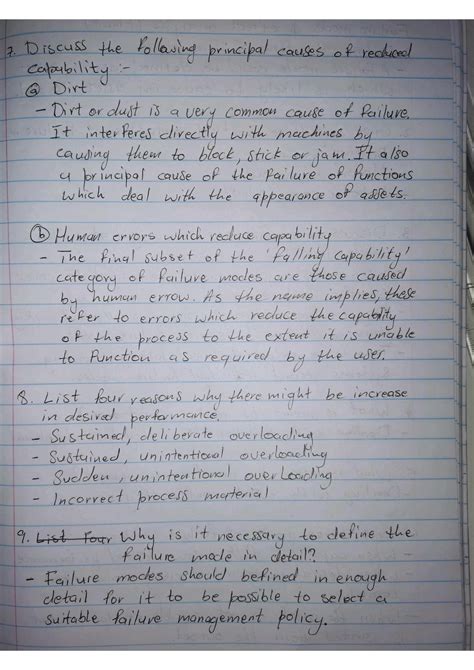 7. Discuss the following principal causes of reduced
capability :-
@ Dirt
- Dirt or dust is a very common cause of failure.
It interferes directly with machines by
causing them to block, stick or jam. It also
a principal cause of the failure of functions
which deal with the appearance of assets.
(b) Human errors which reduce capability
- The final subset of the 'falling capability'
category of failure modes are those caused
by human errow. As the name implies, these
refer to errors which reduce the capability
of the process to the extent it is unable
to function as required by the user.
8. List four reasons why there might be increase
in desired performance.
- Sustained, deliberate overloading
- Sustained, unintentional overloading
- Sudden, unintentional overloading
- Incorrect process material
9. List Four Why is it necessary to define the
failure mode in detail?
- Failure modes should befined in enough
detail for it to be possible to select a
suitable failure management policy.